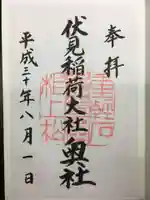 奉拝
伏見稲荷大社奥社
平成三十年八月一日